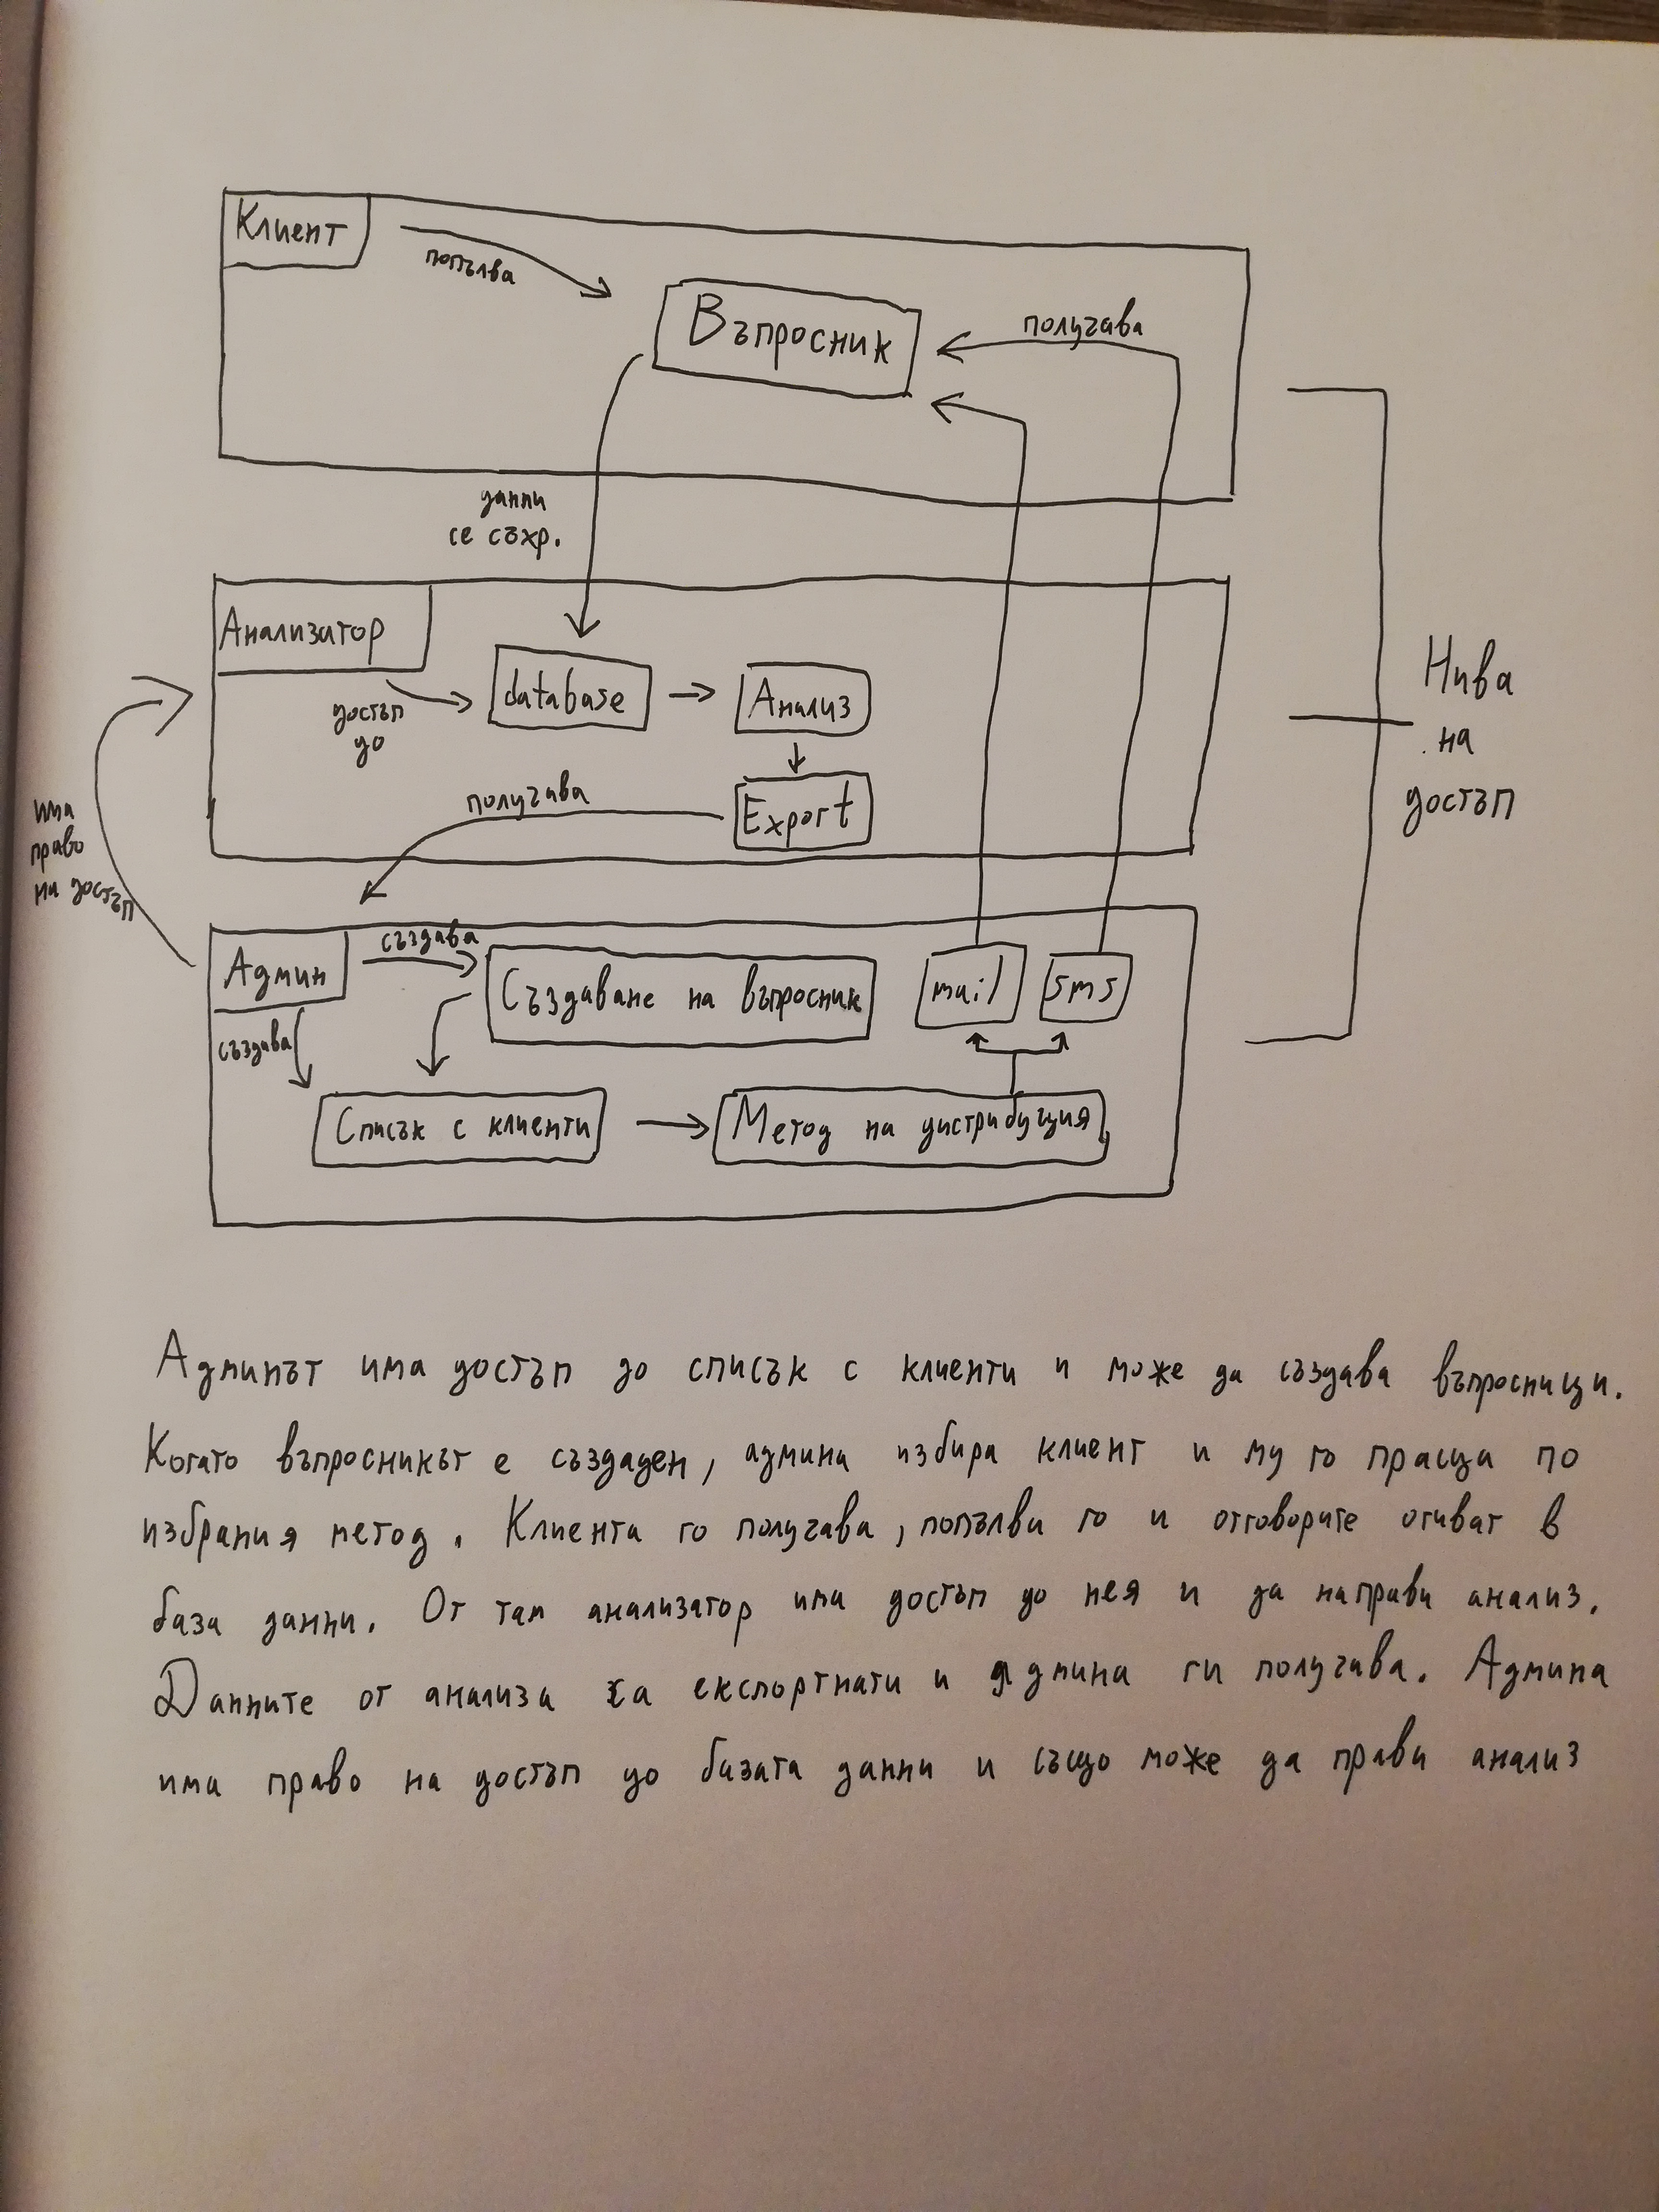 Клиент
попълва
Въпросник
получава
данни
се съхр.
Анализатор
достъп
до
database
Анализ
Export
получава
има
право
на достъп
Нива
на
достъп
Админ
създава
Създаване на въпросник
mail
sms
създава
Списък с клиенти
Метод на дистрибуция
Админът има достъп до списък с клиенти и може да създава въпросници.
Когато въпросникът е създаден, админа избира клиент и му го праща по
избрания метод. Клиента го получава, попълви го и отговорите отиват в
база данни. От там анализатор има достъп до нея и да направи анализ.
Данните от анализа са експортнати и админа ги получава. Админа
има право на достъп до базата данни и също може да прави анализ